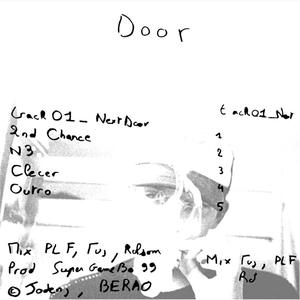 Door
track 01_Next Door
2nd Chance
N3
Clecer
Outro
track01_Not
1
2
3
4
5
Mix PLF, Tuj,
Prod SuperGameBo 99
© Joden, BERAO
Mix Tuj, PLF
Rd